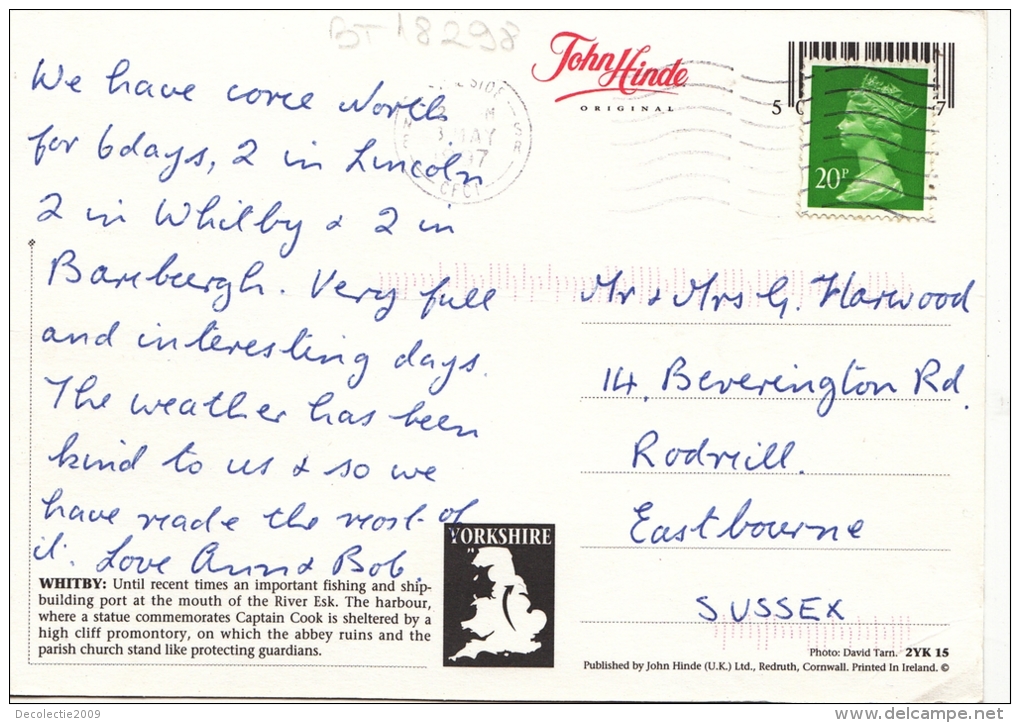 BT 18298
John Hinde
ORIGINAL
5 7
20P
MAY
We have come North
for 6 days, 2 in Lincoln
2 in Whitby & 2 in
Bamburgh. Very full
and interesting days.
The weather has been
kind to us & so we
have made the most of
it. Love Ann & Bob.
Mr & Mrs G. Harwood
14, Beverington Rd,
Rodmill.
Eastbourne
SUSSEX
YORKSHIRE
WHITBY: Until recent times an important fishing and ship-
building port at the mouth of the River Esk. The harbour,
where a statue commemorates Captain Cook is sheltered by a
high cliff promontory, on which the abbey ruins and the
parish church stand like protecting guardians.
Photo: David Tarn. 2YK 15
Published by John Hinde (U.K.) Ltd., Redruth, Cornwall. Printed In Ireland. ©
Decolectie2009
delcampe.net